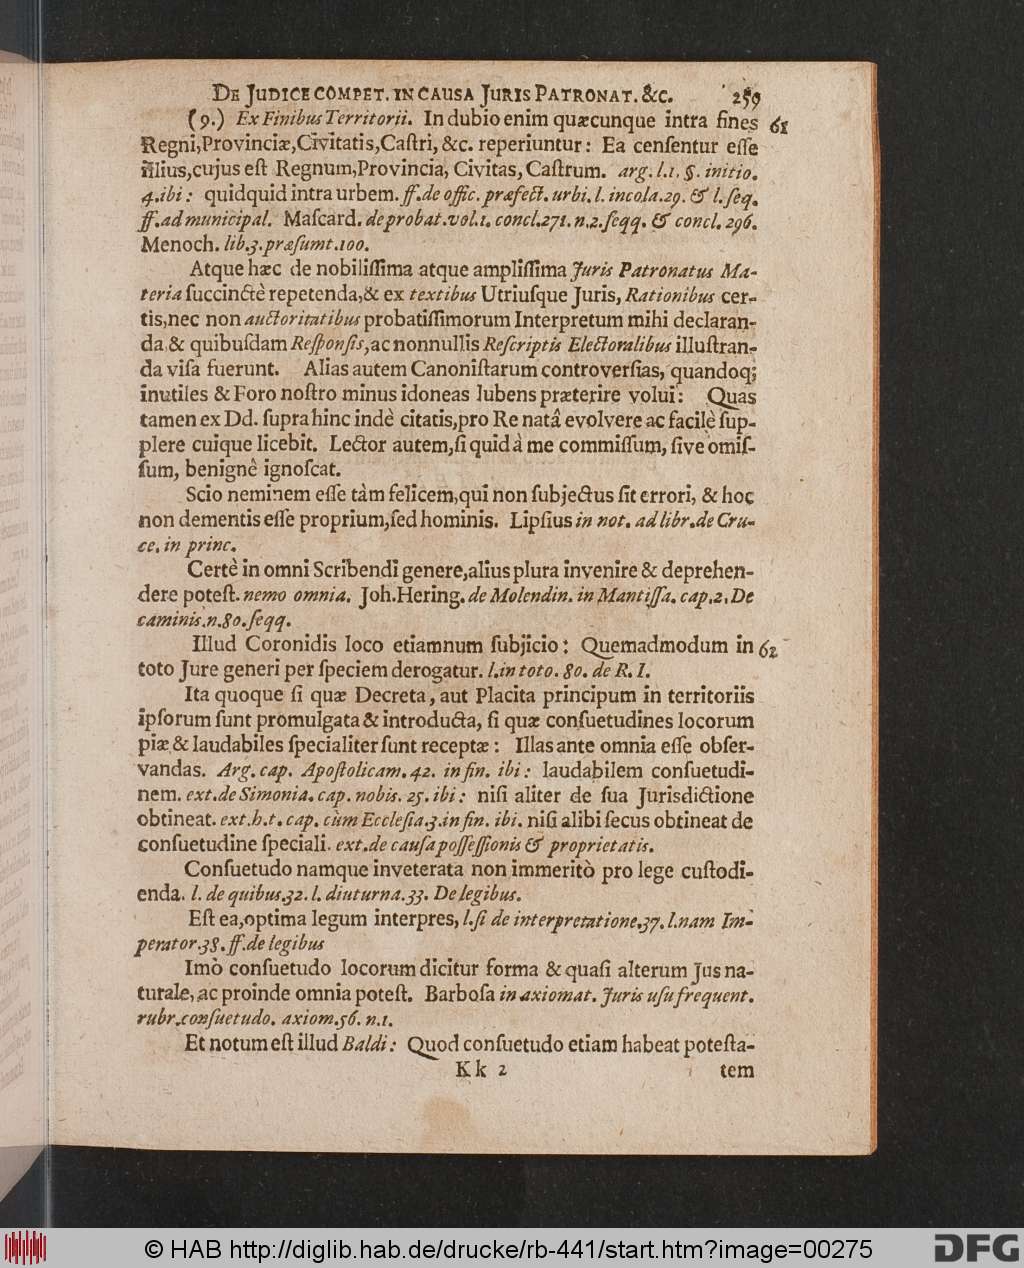 De Judice compet. in causa Juris Patronat. &c. 259
(9.) Ex Finibus Territorii. In dubio enim quæcunque intra fines 61
Regni, Provinciæ, Civitatis, Castri, &c. reperiuntur: Ea censentur esse
illius, cujus est Regnum, Provincia, Civitas, Castrum. arg. l. 1. §. initio.
4. ibi: quidquid intra urbem. ff. de offic. præfect. urbi. l. incola. 29. & l. seq.
ff. ad municipal. Mascard. de probat. vol. 1. concl. 271. n. 2. seqq. & concl. 296.
Menoch. lib. 3. præsumt. 100.
Atque hæc de nobilissima atque amplissima Juris Patronatus Ma-
teria succinctè repetenda, & ex textibus Utriusque Juris, Rationibus cer-
tis, nec non auctoritatibus probatissimorum Interpretum mihi declaran-
da, & quibusdam Responsis, ac nonnullis Rescriptis Electoralibus illustran-
da visa fuerunt. Alias autem Canonistarum controversias, quandoq;
inutiles & Foro nostro minus idoneas lubens præterire volui: Quas
tamen ex Dd. supra hinc indè citatis, pro Re natâ evolvere ac facilè sup-
plere cuique licebit. Lector autem, si quid à me commissum, sive omis-
sum, benignè ignoscat.
Scio neminem esse tàm felicem, qui non subjectus sit errori, & hoc
non dementis esse proprium, sed hominis. Lipsius in not. ad libr. de Cru-
ce. in princ.
Certè in omni Scribendi genere, alius plura invenire & deprehen-
dere potest. nemo omnia. Joh. Hering. de Molendin. in Mantissa. cap. 2. De
caminis. n. 80. seqq.
Illud Coronidis loco etiamnum subjicio: Quemadmodum in 62
toto Jure generi per speciem derogatur. l. in toto. 80. de R. I.
Ita quoque si quæ Decreta, aut Placita principum in territoriis
ipsorum sunt promulgata & introducta, si quæ consuetudines locorum
piæ & laudabiles specialiter sunt receptæ: Illas ante omnia esse obser-
vandas. Arg. cap. Apostolicam. 42. in fin. ibi: laudabilem consuetudi-
nem. ext. de Simonia. cap. nobis. 25. ibi: nisi aliter de sua Jurisdictione
obtineat. ext. h. t. cap. cùm Ecclesia. 3. in fin. ibi. nisi alibi secus obtineat de
consuetudine speciali. ext. de causa possessionis & proprietatis.
Consuetudo namque inveterata non immeritò pro lege custodi-
enda. l. de quibus. 32. l. diuturna. 33. De legibus.
Est ea, optima legum interpres, l. si de interpretatione. 37. l. nam Im-
perator. 38. ff. de legibus
Imò consuetudo locorum dicitur forma & quasi alterum Jus na-
turale, ac proinde omnia potest. Barbosa in axiomat. Juris usu frequent.
rubr. consuetudo. axiom. 56. n. 1.
Et notum est illud Baldi: Quod consuetudo etiam habeat potesta-
Kk 2 tem
© HAB http://diglib.hab.de/drucke/rb-441/start.htm?image=00275 DFG